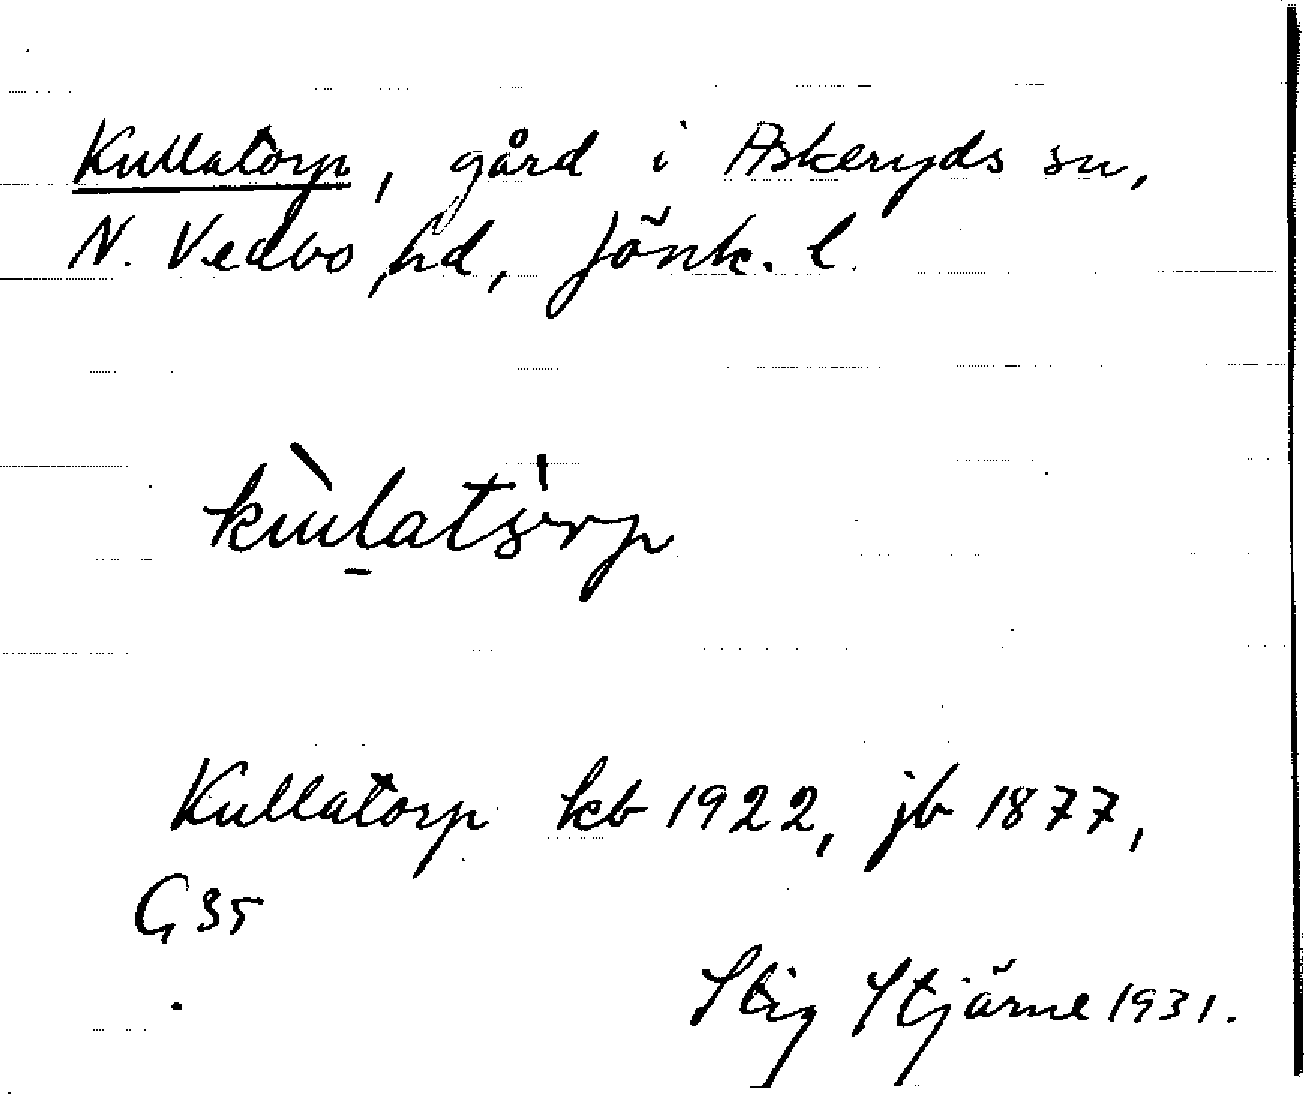 Kullatorp, gård i Askeryds sn,
N. Vedbo hd, Jönk. l.
Kullatorp kb 1922, jb 1877,
G 35
Stig Stjärne 1931.